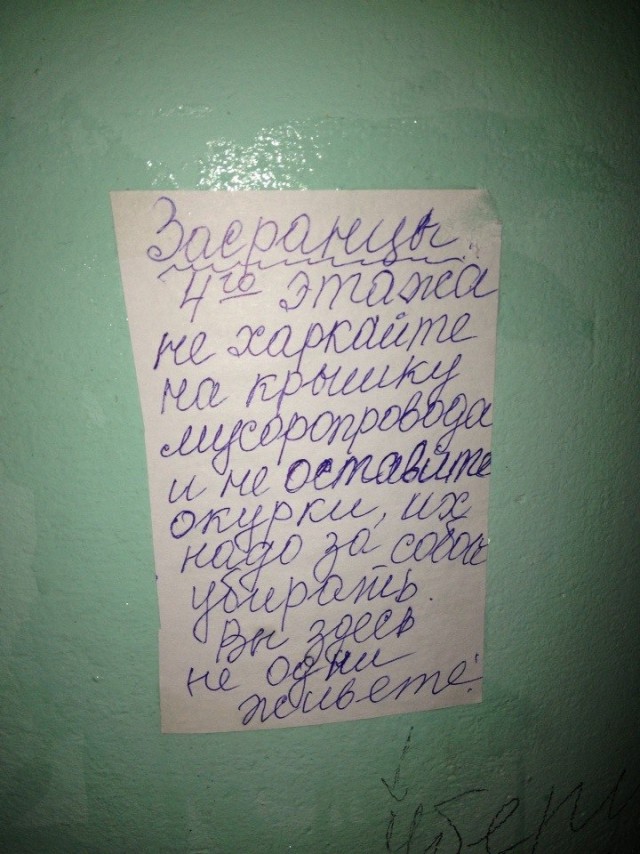 Засранцы
4го этажа
не харкайте
на крышку
мусоропровода
и не оставйте
окурки, их
надо за собой
убирать.
Вы здесь
не одни
живете!